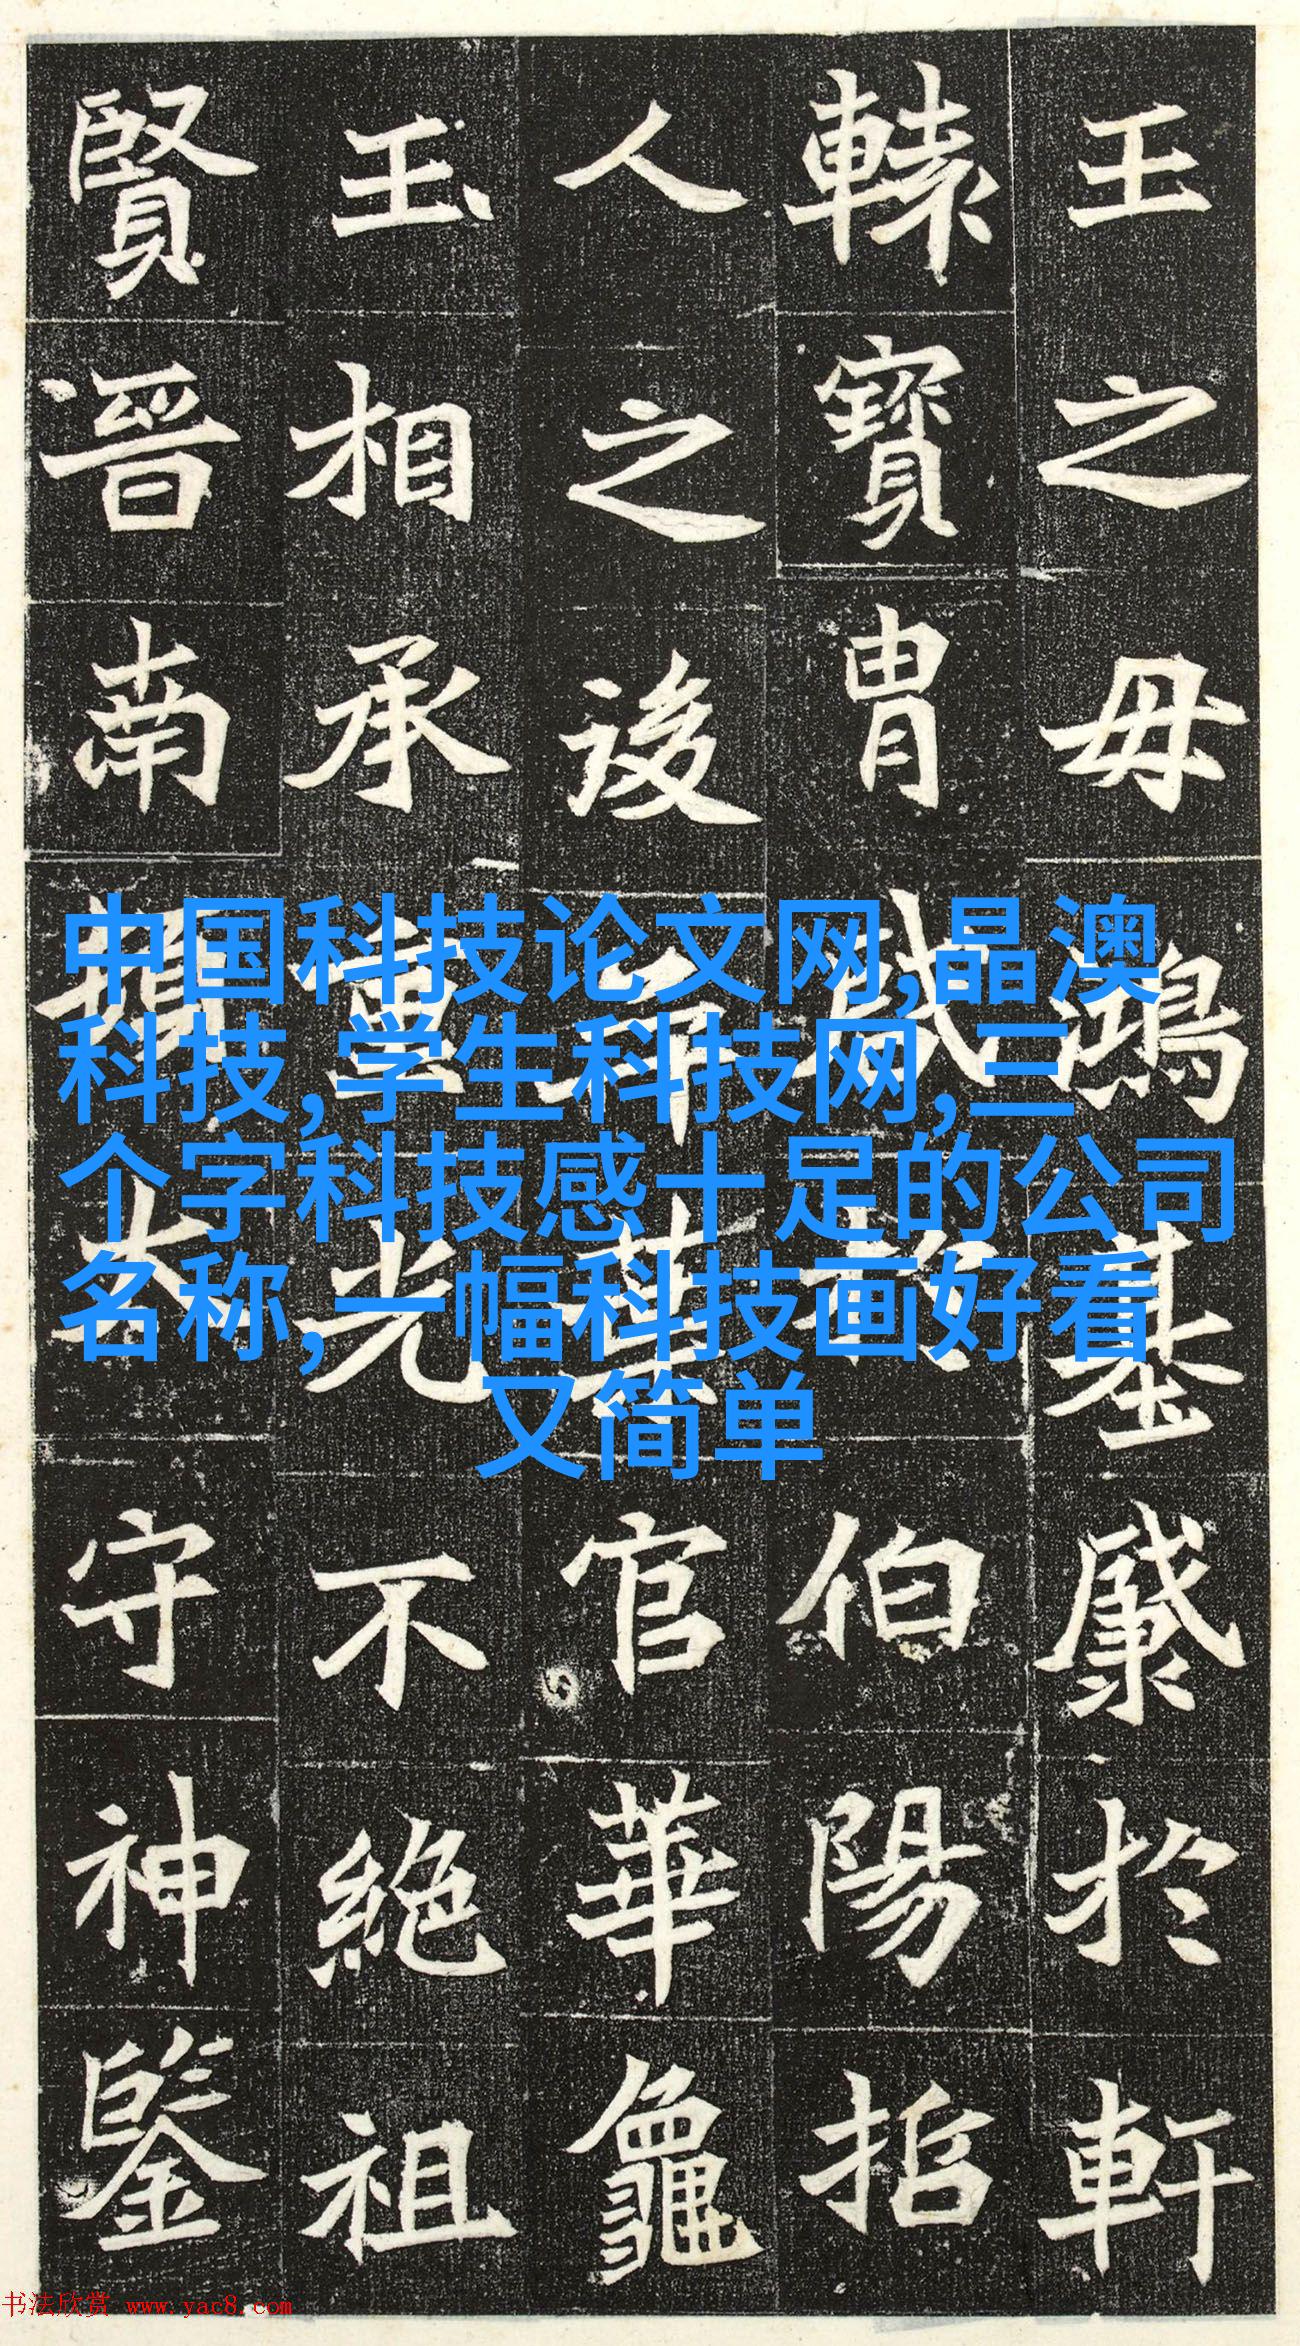 王之母鴻基於軒
轅寶胄伯陽
人之後官華龜
玉相承重光不絕祖
賢晉南守神鑒
中国科技论文网,晶澳
科技,学生科技网,三
个字科技感十足的公司
名称,一幅科技画好看
又简单
书法欣赏 www.yac8.com